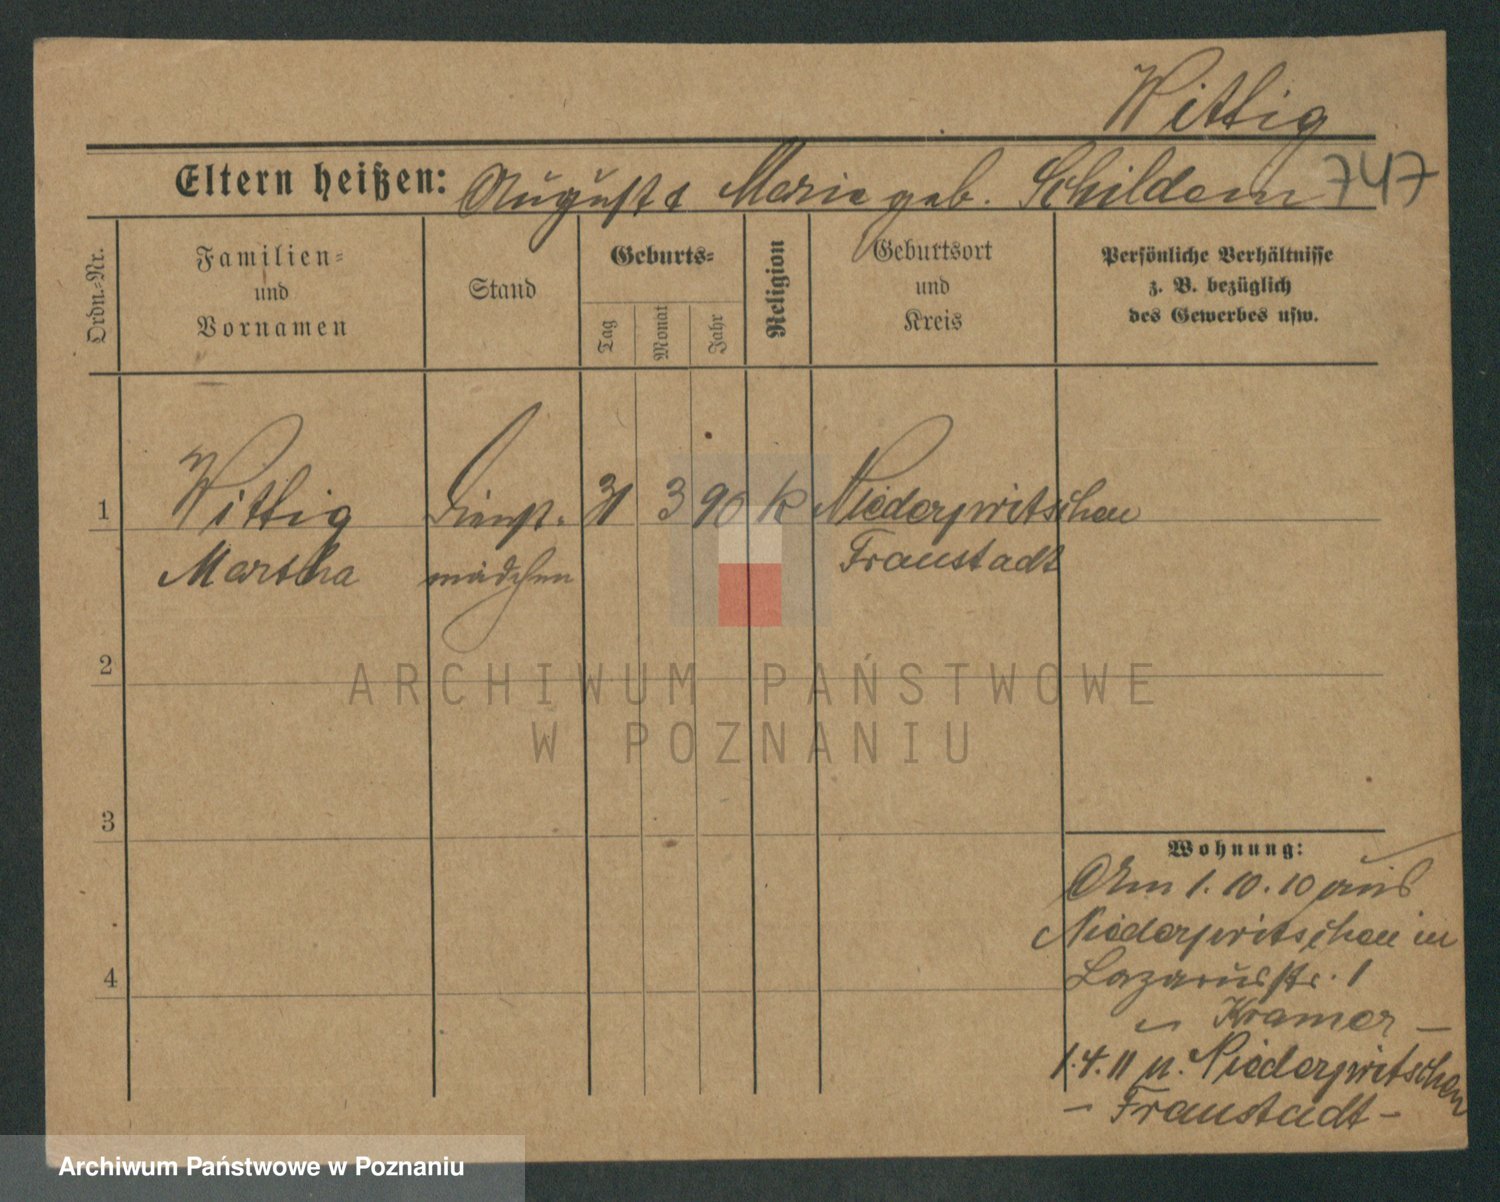 Wittig
Eltern heißen: August & Marie geb. Schildern 747
Ordn.-Nr.
Familien-
und
Vornamen
Stand
Geburts-
Tag
Monat
Jahr
Religion
Geburtsort
und
Kreis
Persönliche Verhältnisse
z. B. bezüglich
des Gewerbes usw.
1 Wittig Dienst- 31 3 90 k Niederpritschen
Martha mädchen Fraustadt
2
3
4
Wohnung:
Am 1. 10. 10 aus
Niederpritschen in
Lazarusstr. 1
Kramer –
1. 4. 11 n. Niederpritschen
– Fraustadt –
ARCHIWUM PAŃSTWOWE
W POZNANIU
Archiwum Państwowe w Poznaniu